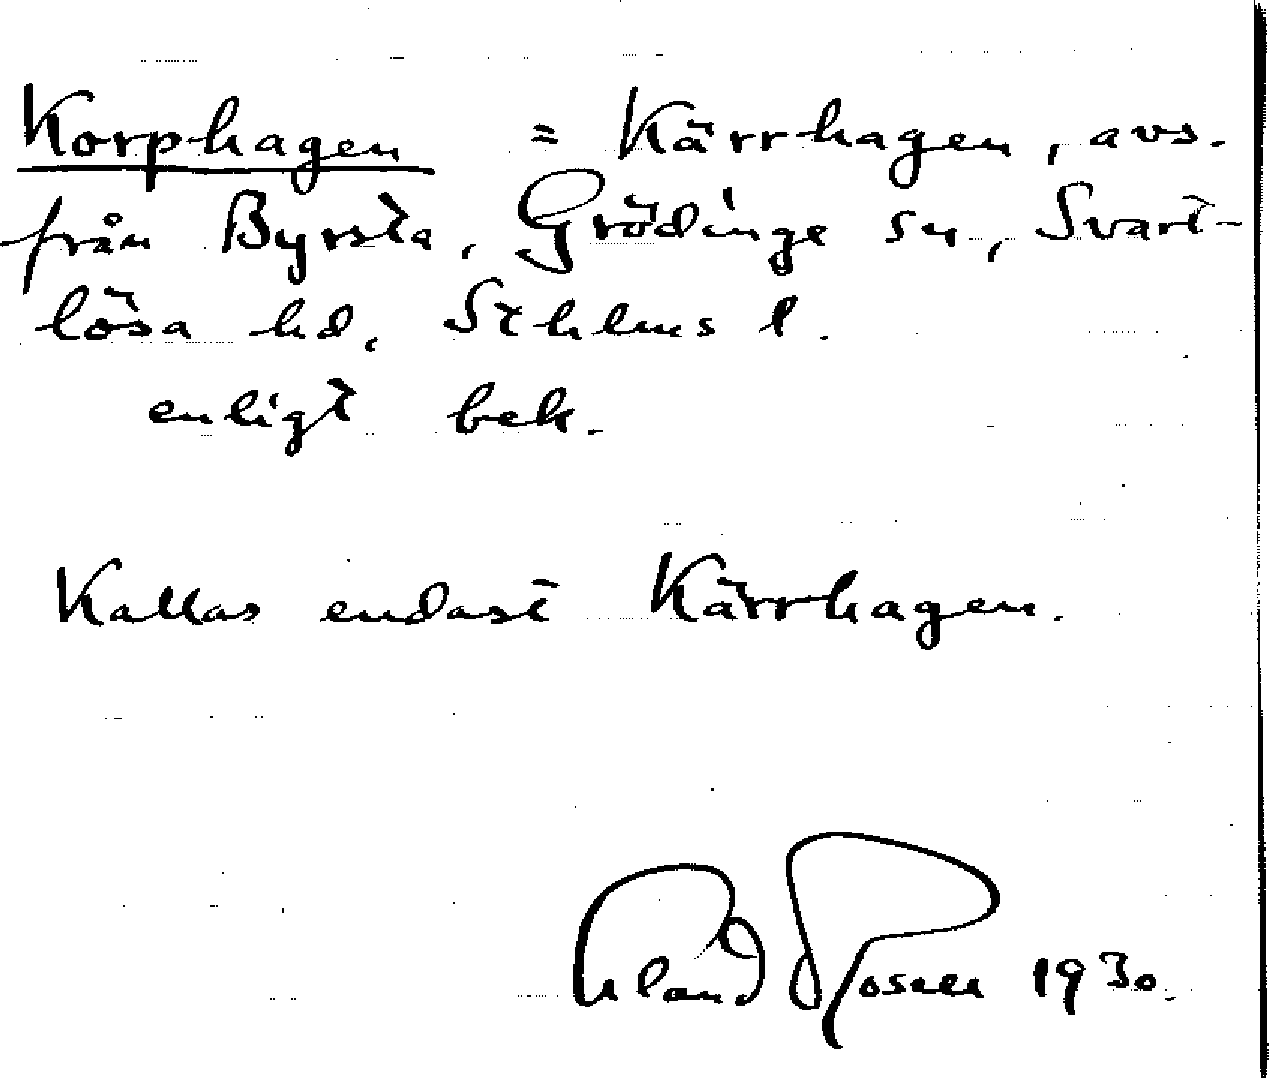 Korphagen = Kärrhagen, avs.
från Byrsta, Grödinge sn, Svart-
lösa hd, Sthlms l.
enligt bek.
Kallas endast Kärrhagen.
Åland Rosell 1930.